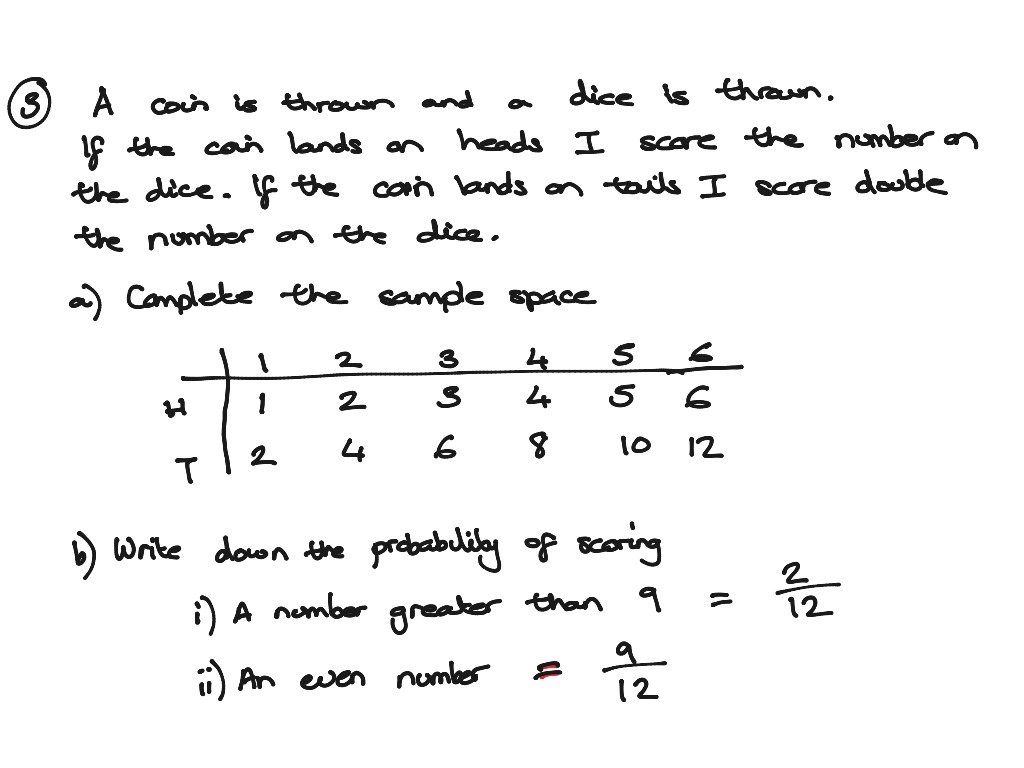 3 A coin is thrown and a dice is thrown.
If the coin lands on heads I score the number on
the dice. If the coin lands on tails I score double
the number on the dice.
a) Complete the sample space
1 2 3 4 5 6
H 1 2 3 4 5 6
T 2 4 6 8 10 12
b) Write down the probability of scoring
i) A number greater than 9 = 2/12
ii) An even number = 9/12